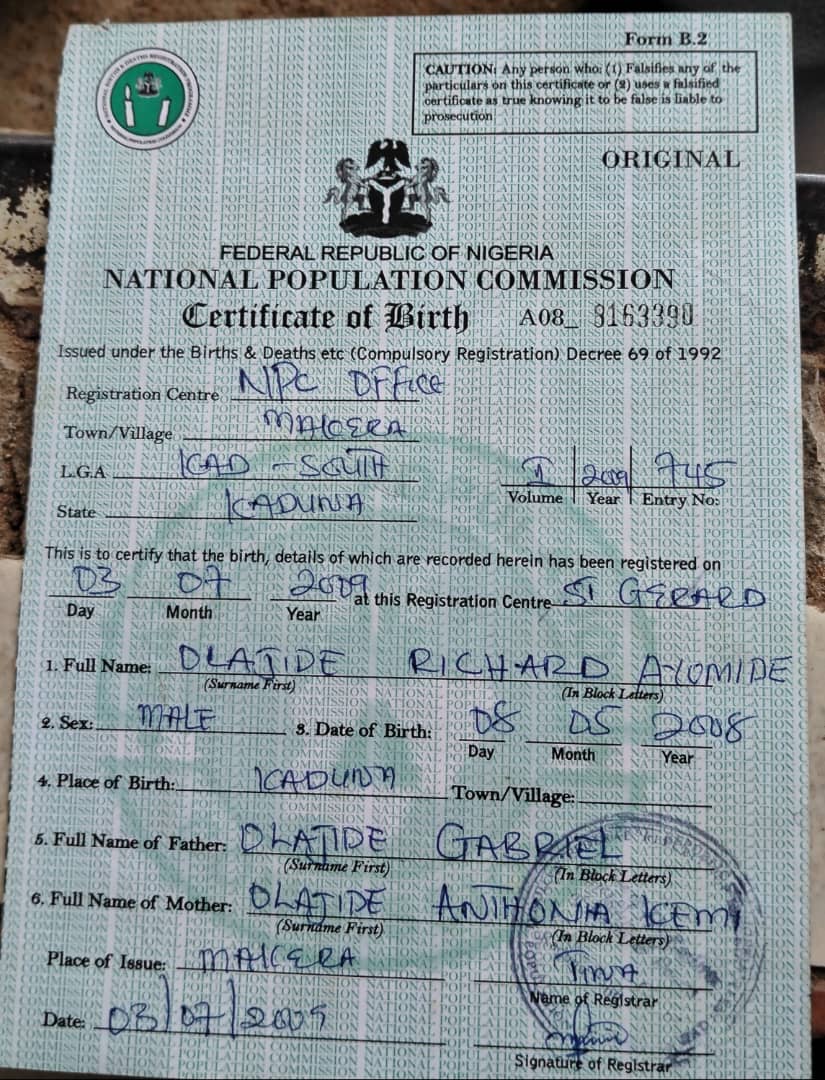 Form B.2
CAUTION: Any person who: (1) Falsifies any of the
particulars on this certificate or (2) uses a falsified
certificate as true knowing it to be false is liable to
prosecution
ORIGINAL
FEDERAL REPUBLIC OF NIGERIA
NATIONAL POPULATION COMMISSION
Certificate of Birth A08_ 9163390
Issued under the Births & Deaths etc (Compulsory Registration) Decree 69 of 1992
Registration Centre NPC OFFICE
Town/Village MAKERA
L.G.A KAD - SOUTH
State KADUNA
I 2009 745
Volume Year Entry No:
This is to certify that the birth, details of which are recorded herein has been registered on
03 07 2009 at this Registration Centre ST GERARD
Day Month Year
1. Full Name: OLATIDE RICHARD AYOMIDE
(Surname First) (In Block Letters)
2. Sex: MALE 3. Date of Birth: 08 05 2008
Day Month Year
4. Place of Birth: KADUNA Town/Village:
5. Full Name of Father: OLATIDE GABRIEL
(Surname First) (In Block Letters)
6. Full Name of Mother: OLATIDE ANTHONIA KEMI
(Surname First) (In Block Letters)
Place of Issue: MAKERA TINA
Name of Registrar
Date: 03/07/2009
Signature of Registrar